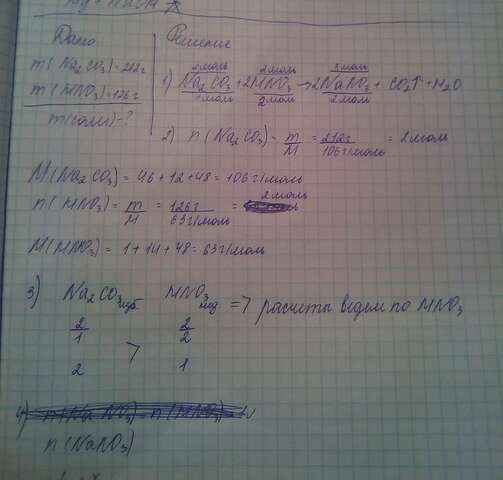 Дано
Решение
m(Na2CO3)=212г
m(HNO3)=126г
m(соли)-?
2моль 2моль 2моль
1) Na2CO3+2HNO3→2NaNO3+CO2↑+H2O
1моль 2моль 2моль
2) n(Na2CO3)=m/M=212г/106г/моль=2моль
M(Na2CO3)=46+12+48=106г/моль
n(HNO3)=m/M=126г/63г/моль=2моль
M(HNO3)=1+14+48=63г/моль
3) Na2CO3изб HNO3нед => расчеты ведем по HNO3
2/1 > 2/2
2 1
4) n(NaNO3)=n(HNO3)
n(NaNO3)